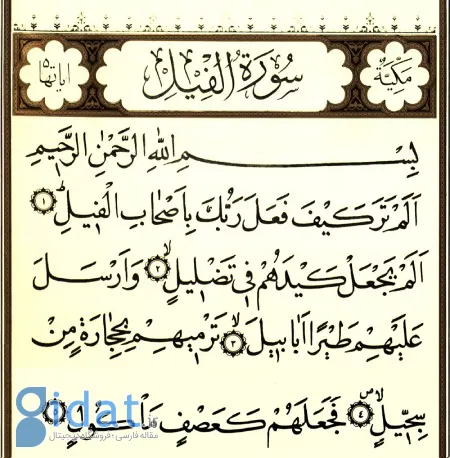 مَكِّيَّةٌ سُورَةُ الْفِيلِ آيَاتُهَا ٥
بِسْمِ اللَّهِ الرَّحْمٰنِ الرَّحِيمِ
اَلَمْ تَرَ كَيْفَ فَعَلَ رَبُّكَ بِاَصْحَابِ الْفِيلِ ۱
اَلَمْ يَجْعَلْ كَيْدَهُمْ فِي تَضْلِيلٍ ۲ وَاَرْسَلَ
عَلَيْهِمْ طَيْرًا اَبَابِيلَ ۳ تَرْمِيهِمْ بِحِجَارَةٍ مِنْ
سِجِّيلٍ ٤ فَجَعَلَهُمْ كَعَصْفٍ مَأْكُولٍ ٥
gidat.ir
مقاله فارسی؛ فروشگاه دیجیتال